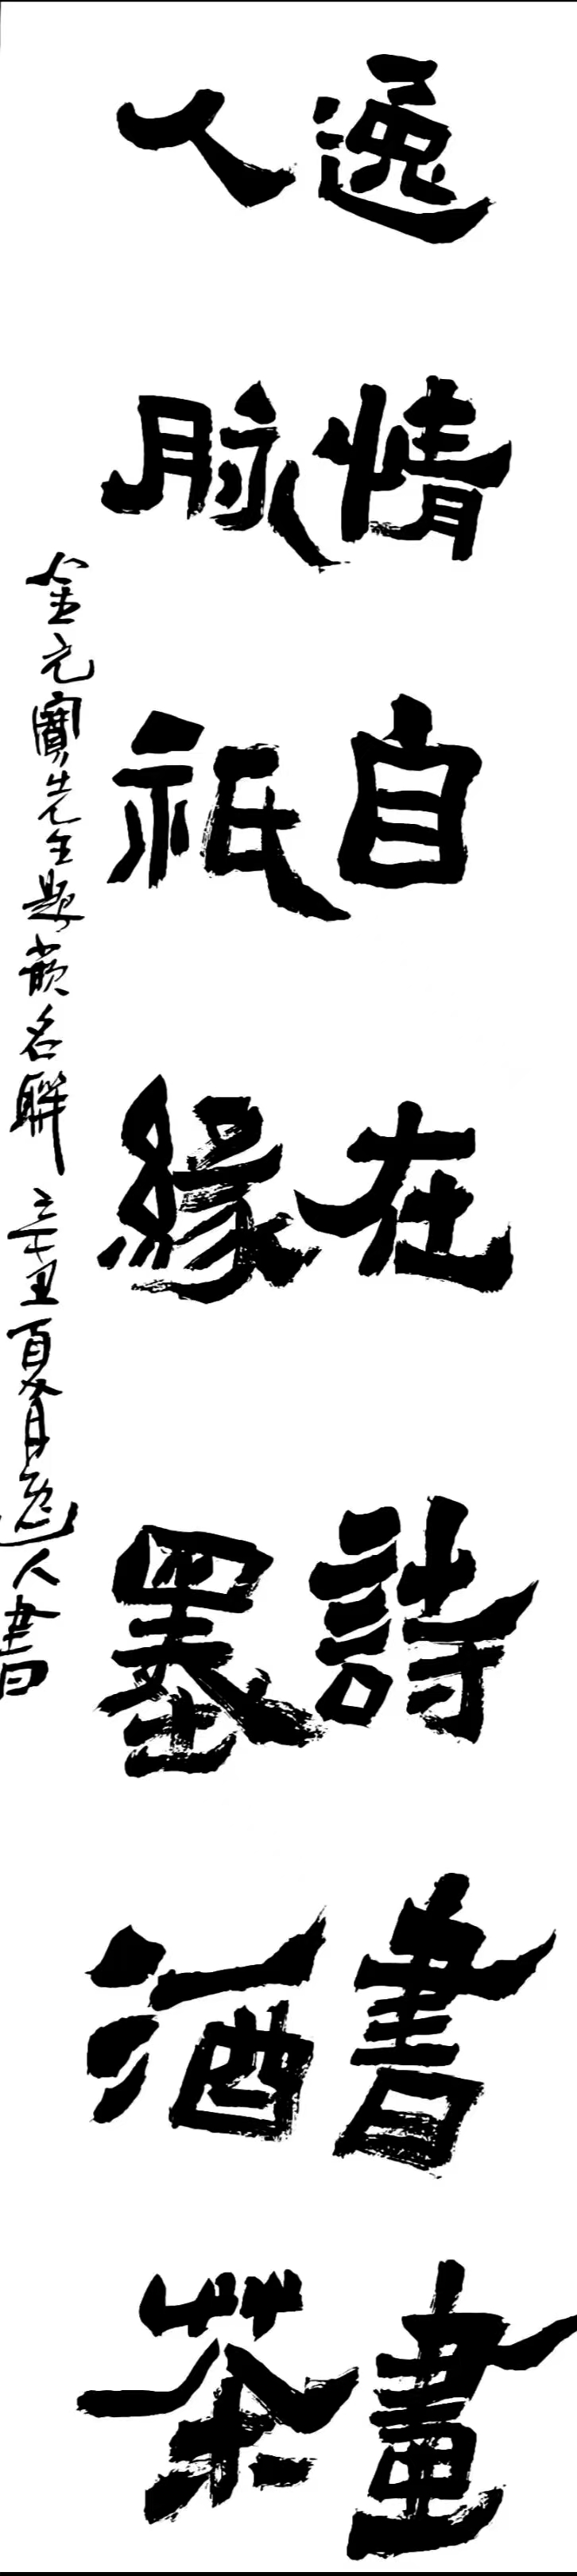 逸情自在詩書畫
人脈祇緣墨酒茶
金元寶先生題嵌名聯 辛丑夏月逸人書